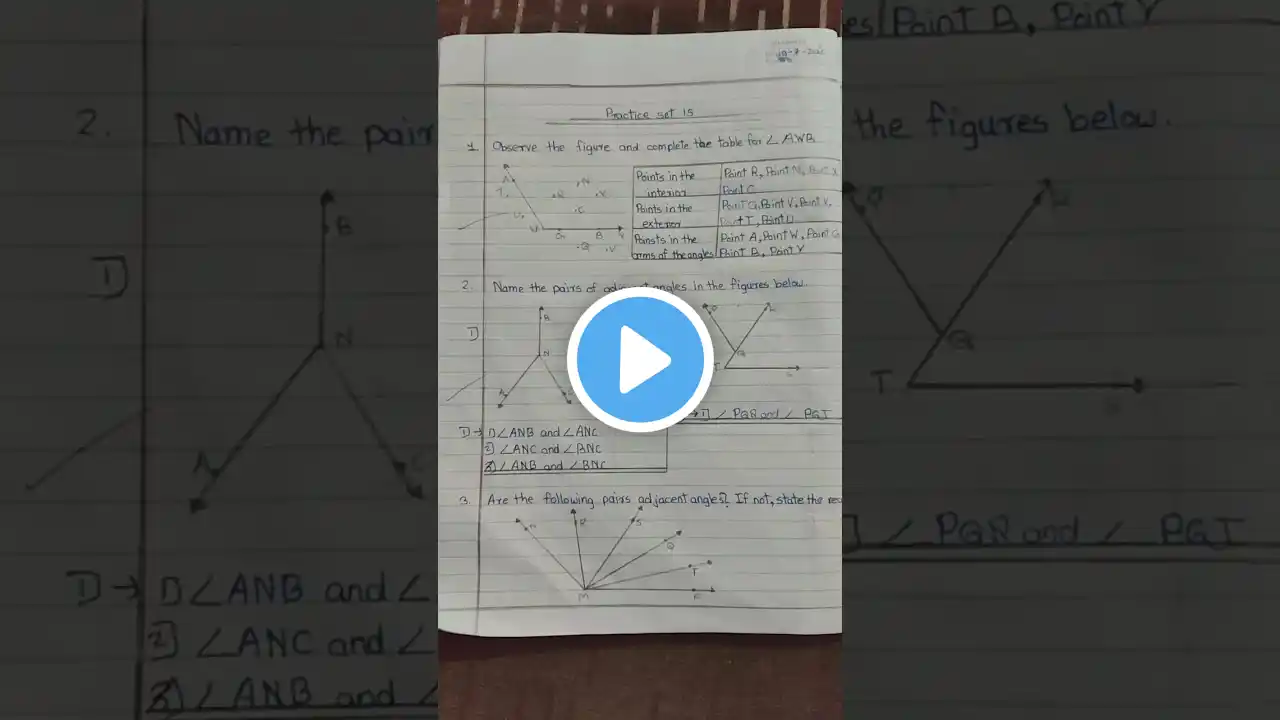 Practice set 15
1. Observe the figure and complete the table for ∠AWB
Points in the interior
Point R, Point N, Point X
Point C
Points in the exterior
Point T, Point U
Poinsts in the arms of the angles
Point A, Point W, Point G
Point B, Point Y
2. Name the pairs of angles in the figures below.
1)
B
N
A
C
L
Q
T
1) → 1) ∠ANB and ∠ANC
2) ∠ANC and ∠BNC
3) ∠ANB and ∠BNC
1) ∠ PQR and ∠ PQT
3. Are the following pairs adjacent angles? If not, state the
R
S
Q
T
M
es/Point B, Point Y
2. Name the pair
the figures below.
1)
B
N
A
C
Q
T
1) → 1) ∠ANB and ∠
2) ∠ANC and ∠
3) ∠ANB and ∠
∠ PQR and ∠ PQT